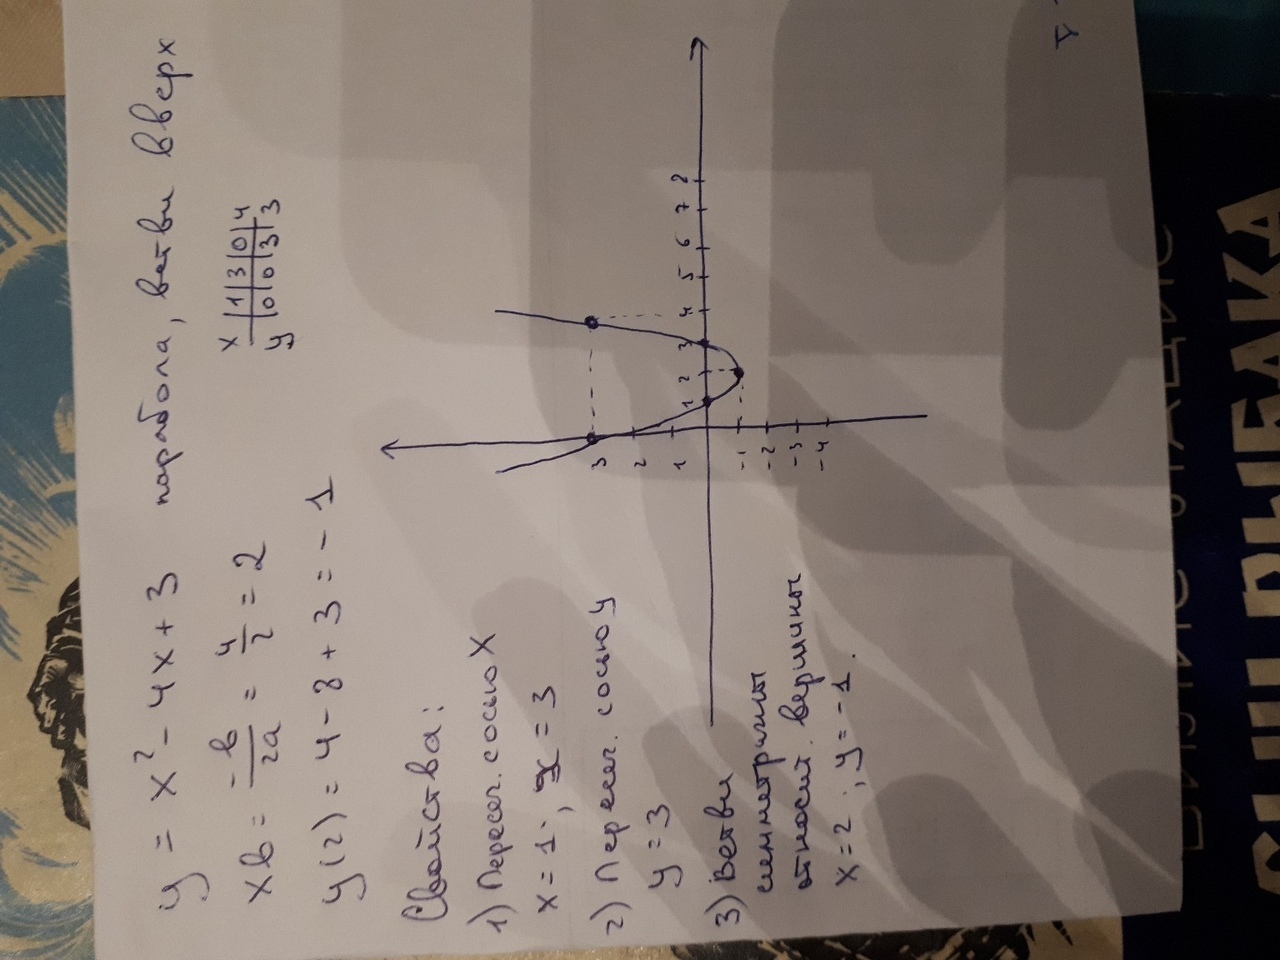 y = x² - 4x + 3 парабола, ветви вверх
xв = -в/2a = 4/2 = 2
x | 1 | 3 | 0 | 4
y | 0 | 0 | 3 | 3
y(2) = 4 - 8 + 3 = -1
Свойства:
1) Пересеч. с осью X
x = 1; x = 3
2) Пересеч. с осью y
y = 3
3) Ветви
симметричны
относит. вершины
x = 2; y = -1.
3
2
1
-1
-2
-3
-4
1 2 3 4 5 6 7 8
РЫБАКА